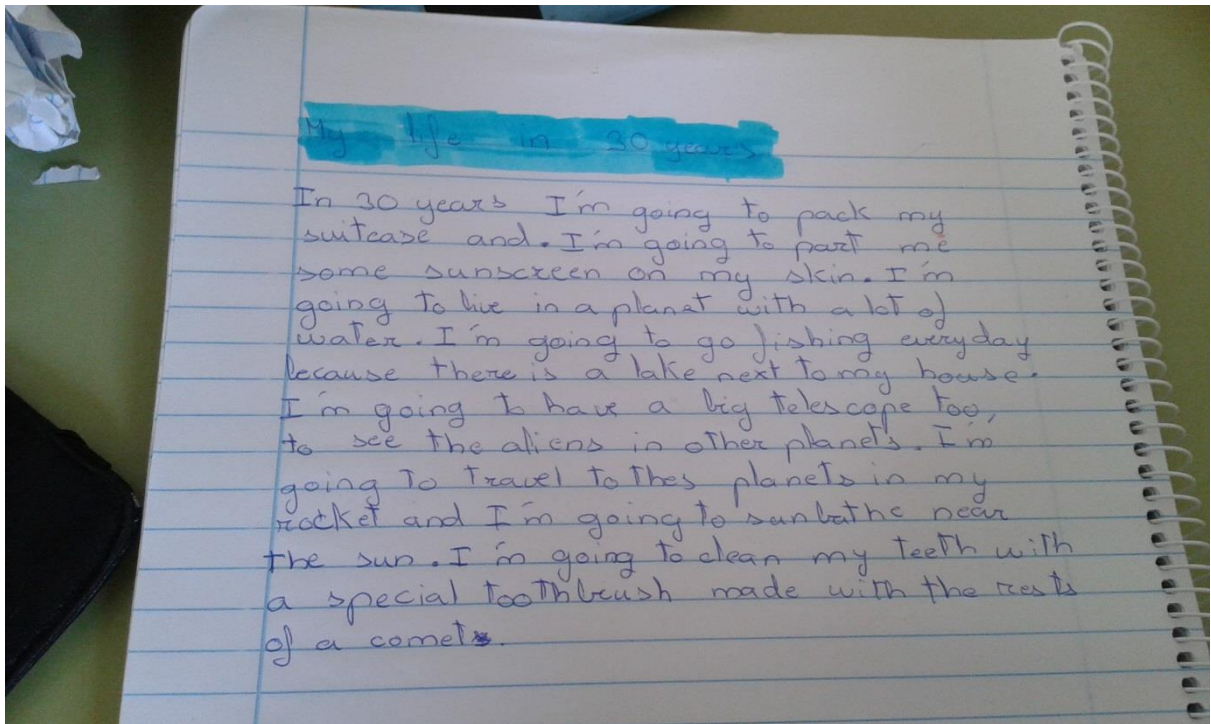 My life in 30 years
In 30 years I'm going to pack my
suitcase and. I'm going to part me
some sunscreen on my skin. I'm
going to live in a planet with a lot of
water. I'm going to go fishing everyday
because there is a lake next to my house.
I'm going to have a big telescope too,
to see the aliens in other planets. I'm
going to travel to thes planets in my
rocket and I'm going to sunbathe near
the sun. I'm going to clean my teeth with
a special toothbrush made with the rests
of a comet.